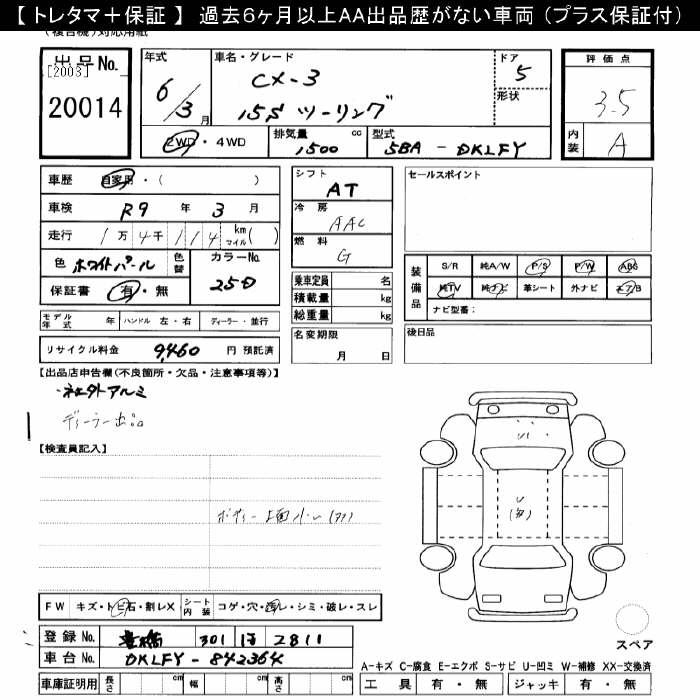 【トレタマ＋保証】 過去6ヶ月以上AA出品歴がない車両（プラス保証付）
(複合機)対応用紙
出品No. [2003] 20014
年式 6/3月
車名・グレード CX-3 15S ツーリング
ドア 5
形状
2WD・4WD
排気量 1500 cc
型式 5BA - DKLFY
評価点 3.5
内装 A
車歴 自家用・( )
車検 R9 年 3 月
走行 1万4千114 km マイル( )
色 ホワイトパール 色替 カラーNo. 25D
保証書 有・無
シフト AT
冷房 AAC
燃料 G
乗車定員 名
積載量 kg
総重量 kg
セールスポイント
装備品 S/R 純A/W P/S P/W ABS
純TV 純ナビ 革シート 外ナビ エア/B
ナビ型番:
モデル年式 年 ハンドル 左・右 ディーラー・並行
名変期限 月 日
後日品
リサイクル料金 9,460 円 預託済
【出品店申告欄(不良箇所・欠品・注意事項等)】
・社外アルミ
ディーラー出品
【検査員記入】
ボディー上面小U(多)
U
U
(多)
FW キズ・トビ石・割レX シート内装 コゲ・穴・汚レ・シミ・破レ・スレ
登録No. 豊橋 301 ほ 2811
車台No. DKLFY - 842364
車庫証明用 長さ cm 幅 cm 高さ cm
スペア
A-キズ C-腐食 E-エクボ S-サビ U-凹ミ W-補修 XX-交換済
工具 有・無 ジャッキ 有・無